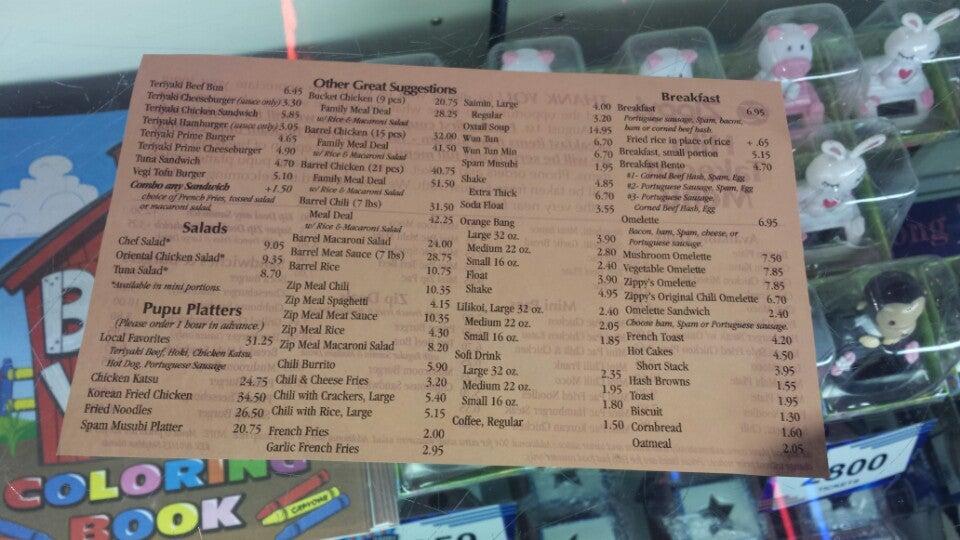 Teriyaki Beef Bun 6.45
Teriyaki Cheeseburger (sauce only) 3.30
Teriyaki Chicken Sandwich 5.85
Teriyaki Hamburger (sauce only) 3.05
Teriyaki Prime Burger 4.65
Teriyaki Prime Cheeseburger 4.90
Tuna Sandwich 4.70
Vegi Tofu Burger 5.10
Combo any Sandwich +1.50
choice of French Fries, tossed salad
or macaroni salad.
Salads
Chef Salad* 9.05
Oriental Chicken Salad* 9.35
Tuna Salad* 8.70
*Available in mini portions.
Pupu Platters
(Please order 1 hour in advance.)
Local Favorites 31.25
Teriyaki Beef, Hoki, Chicken Katsu,
Hot Dog, Portuguese Sausage
Chicken Katsu 24.75
Korean Fried Chicken 34.50
Fried Noodles 26.50
Spam Musubi Platter 20.75
Other Great Suggestions
Bucket Chicken (9 pcs) 20.75
Family Meal Deal 28.25
w/ Rice & Macaroni Salad
Barrel Chicken (15 pcs) 32.00
Family Meal Deal 41.50
w/ Rice & Macaroni Salad
Barrel Chicken (21 pcs) 40.75
Family Meal Deal 51.50
w/ Rice & Macaroni Salad
Barrel Chili (7 lbs) 31.50
Meal Deal 42.25
w/ Rice & Macaroni Salad
Barrel Macaroni Salad 24.00
Barrel Meat Sauce (7 lbs) 28.75
Barrel Rice 10.75
Zip Meal Chili 10.35
Zip Meal Spaghetti 4.15
Zip Meal Meat Sauce 10.35
Zip Meal Rice 4.30
Zip Meal Macaroni Salad 8.20
Chili Burrito 5.90
Chili & Cheese Fries 3.20
Chili with Crackers, Large 5.40
Chili with Rice, Large 5.15
French Fries 2.00
Garlic French Fries 2.95
Saimin, Large 4.00
Regular 3.20
Oxtail Soup 14.95
Wun Tun 6.70
Wun Tun Min 6.70
Spam Musubi 1.95
Shake 4.85
Extra Thick 6.70
Soda Float 3.55
Orange Bang
Large 32 oz. 3.90
Medium 22 oz. 2.80
Small 16 oz. 2.40
Float 3.90
Shake 4.95
Lilikoi, Large 32 oz. 2.40
Medium 22 oz. 2.05
Small 16 oz. 1.85
Soft Drink
Large 32 oz. 2.35
Medium 22 oz. 1.95
Small 16 oz. 1.80
Coffee, Regular 1.50
Breakfast
Breakfast 6.95
Portuguese sausage, Spam, bacon,
ham or corned beef hash.
Fried rice in place of rice + .65
Breakfast, small portion 5.15
Breakfast Bento 4.70
#1- Corned Beef Hash, Spam, Egg
#2- Portuguese Sausage, Spam, Egg
#3- Portuguese Sausage,
Corned Beef Hash, Egg
Omelette 6.95
Bacon, ham, Spam, cheese, or
Portuguese sausage.
Mushroom Omelette 7.50
Vegetable Omelette 7.85
Zippy's Omelette 7.85
Zippy's Original Chili Omelette 6.70
Omelette Sandwich 2.40
Choose ham, Spam or Portuguese sausage.
French Toast 4.20
Hot Cakes 4.50
Short Stack 3.95
Hash Browns 1.55
Toast 1.95
Biscuit 1.30
Cornbread 1.60
Oatmeal 2.05
COLORING
BOOK
CRAYONS
800
TICKETS